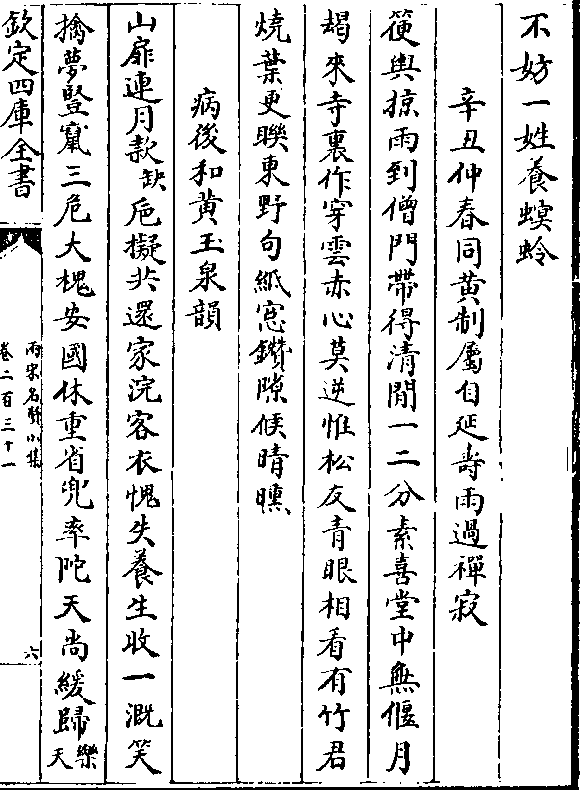 不妨一姓養螟蛉
辛丑仲春同黄制屬自延壽雨過禪寂
箯輿掠雨到僧門帶得清閒一二分素喜堂中無偃月
朅來寺裏作穿雲赤心莫逆惟松友青眼相看有竹君
燒葉更聨東野句紙窓鑽隙候晴曛
病後和黄玉泉韻
山扉連月款缺巵擬共還家浣客衣愧失養生收一溉笑
擒夢豎竄三危大槐安國休重省兜率陀天尚緩歸樂天
欽定四庫全書
兩宋名賢小集
卷二百三十一
六